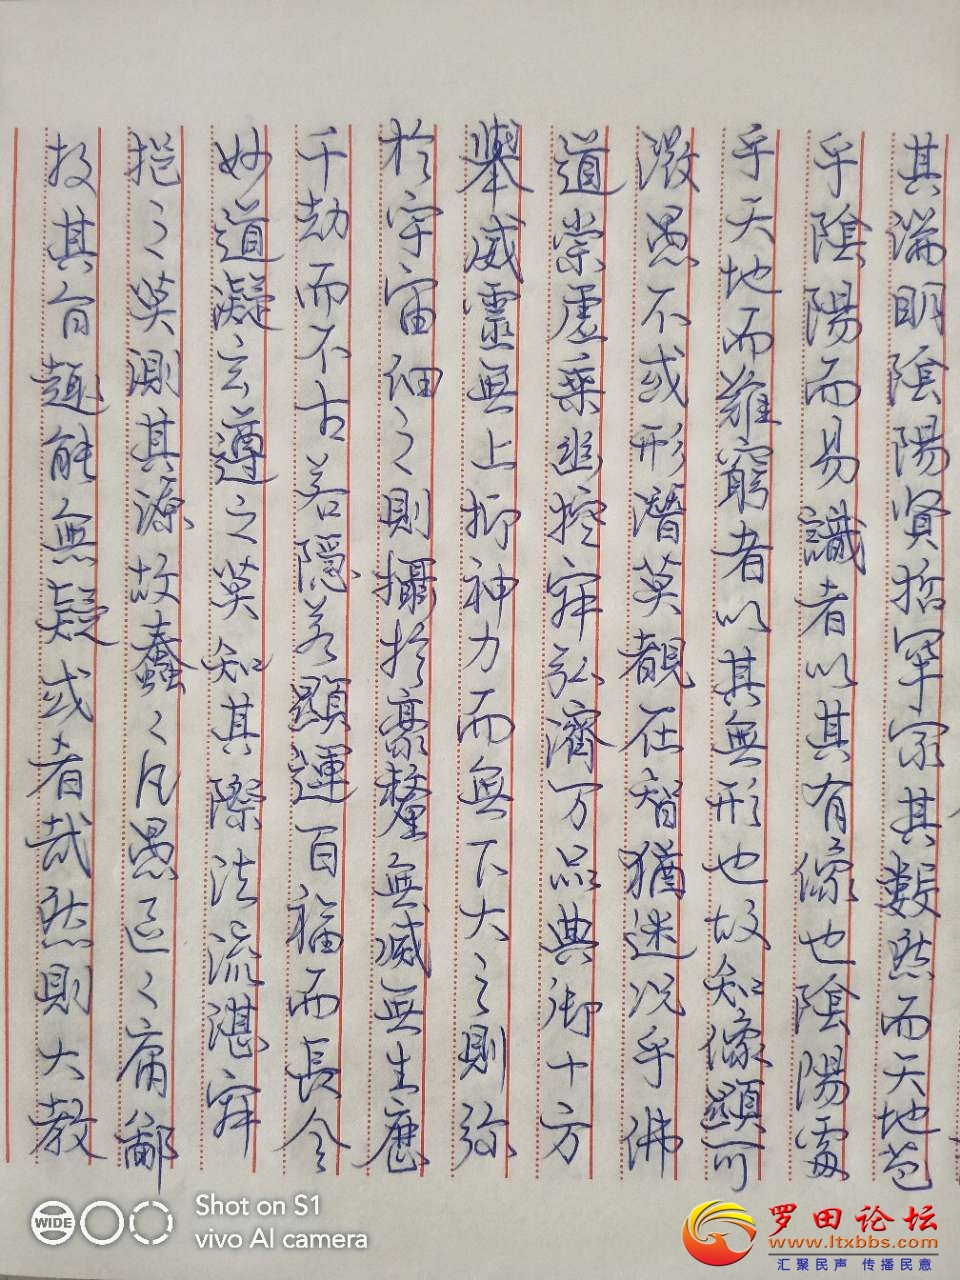 其端明陰陽賢哲罕窮其數然而天地苞
乎陰陽而易識者以其有像也陰陽處
乎天地而難窮者以其無形也故知像顯可
徵愚不或形潛莫覩在智猶迷況乎佛
道崇虛乘幽控寂弘濟万品典御十方
舉威靈無上抑神力而無下大之則弥
於宇宙細之則攝於豪釐無滅無生歷
千劫而不古若隱若顯運百福而長今
妙道凝玄遵之莫知其際法流湛寂
挹之莫測其源故蠢々凡愚區々庸鄙
投其旨趣能無疑或者哉然則大教
WIDE
Shot on S1
vivo AI camera
罗田论坛
www.ltxbbs.com
汇聚民声 传播民意